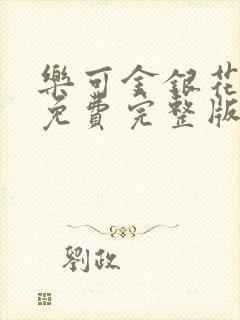 樂可金銀花
免費完整版
劉政